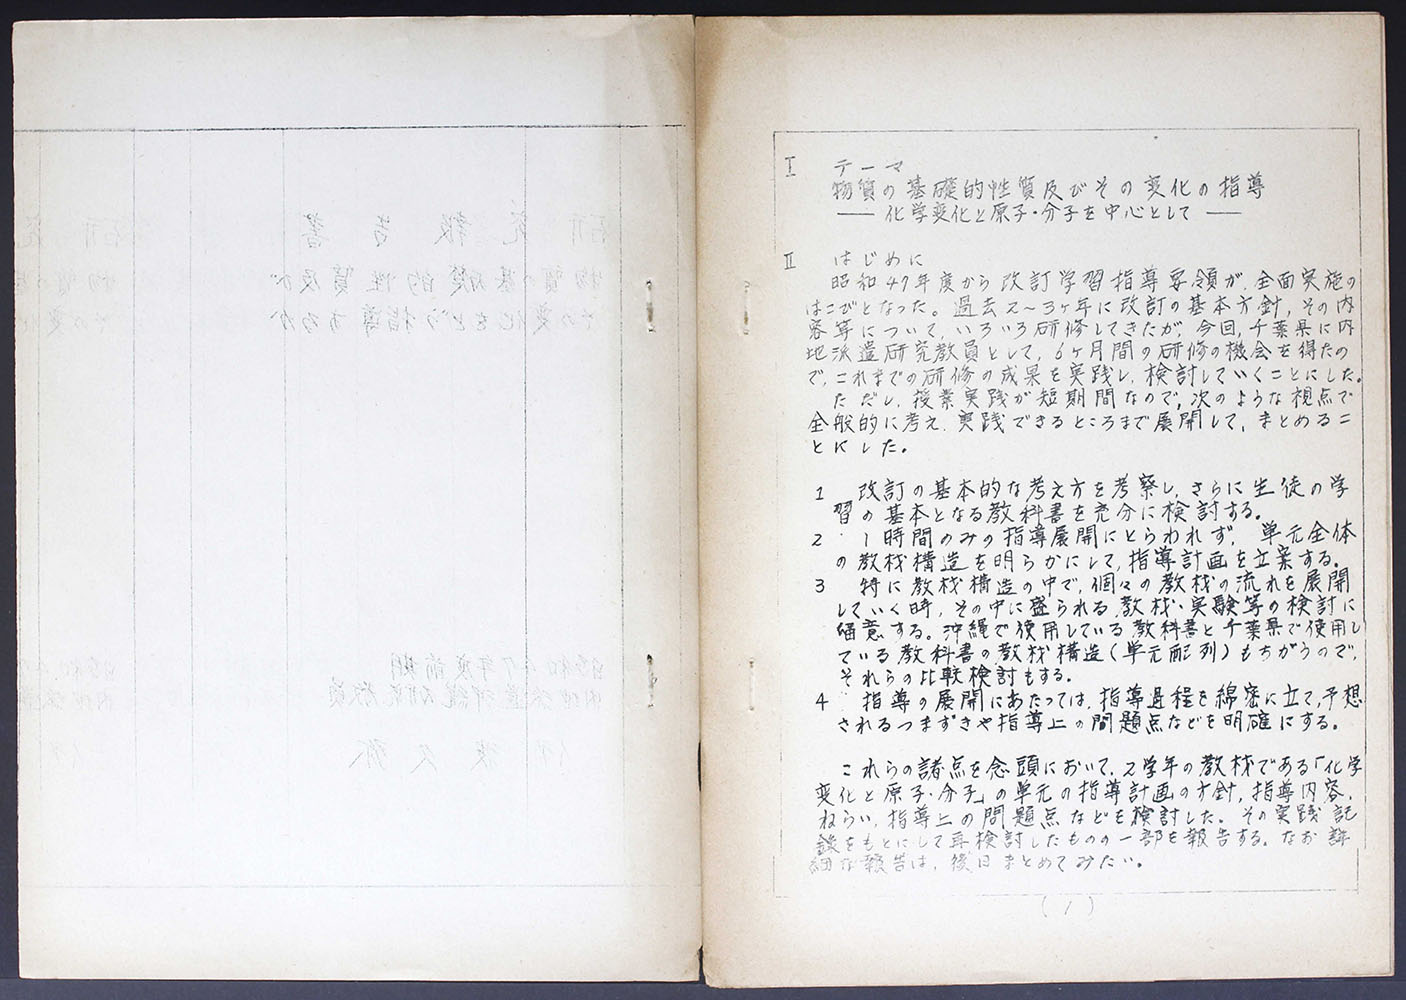 研究報告書
物質の基礎的性質及び
その変化をどう指導するか
昭和47年度前期
内地派遣沖縄研究教員
久弥
I テーマ
物質の基礎的性質及びその変化の指導
── 化学変化と原子・分子を中心として ──
II はじめに
昭和47年度から改訂学習指導要領が、全面実施の
はこびとなった。過去2～3ヶ年に改訂の基本方針、その内
容等について、いろいろ研修してきたが、今回、千葉県に内
地派遣研究教員として、6ヶ月間の研修の機会を得たの
で、これまでの研修の成果を実践し、検討していくことにした。
ただし、授業実践が短期間なので、次のような視点で
全般的に考え、実践できるところまで展開して、まとめるこ
とにした。
1 改訂の基本的な考え方を考察し、さらに生徒の学
習の基本となる教科書を充分に検討する。
2 1時間のみの指導展開にとらわれず、単元全体
の教材構造を明らかにして、指導計画を立案する。
3 特に教材構造の中で、個々の教材の流れを展開
していく時、その中に盛られる教材・実験等の検討に
留意する。沖縄で使用している教科書と千葉県で使用し
ている教科書の教材構造(単元配列)もちがうので、
それらの比較検討もする。
4 指導の展開にあたっては、指導過程を綿密に立て、予想
されるつまずきや指導上の問題点などを明確にする。
これらの諸点を念頭において、2学年の教材である「化学
変化と原子・分子」の単元の指導計画の方針、指導内容、
ねらい、指導上の問題点などを検討した。その実践記
録をもとにして再検討したものの一部を報告する。なお詳
細な報告は、後日まとめてみたい。
(1)